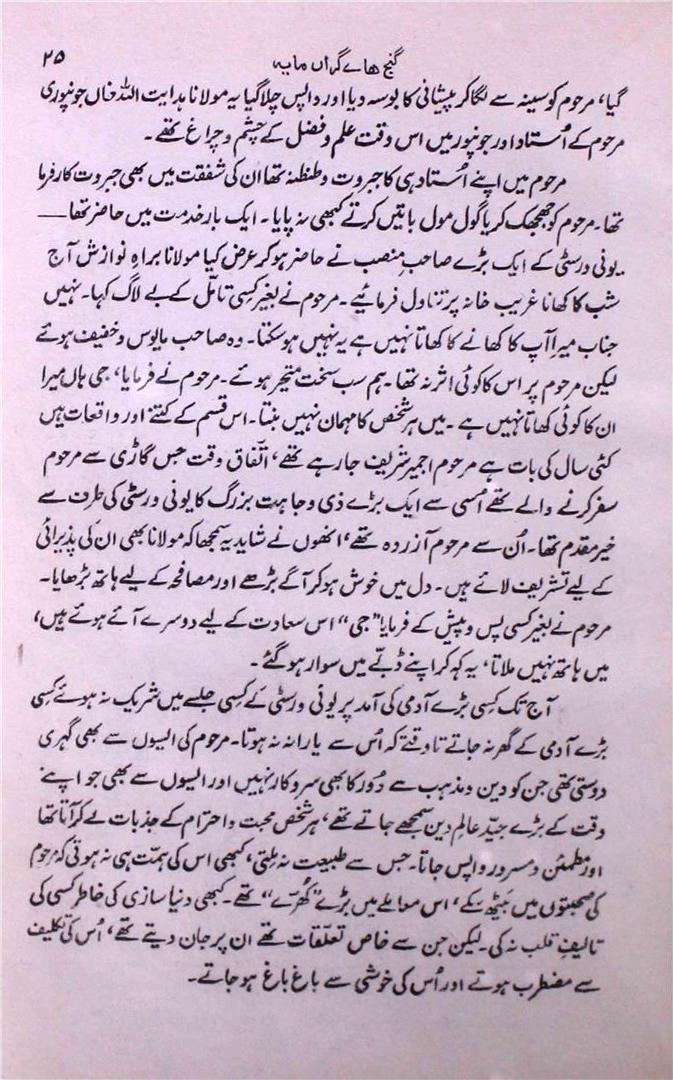 گنج هاے گراں مایہ
۲۵
گیا، مرحوم کو سینہ سے لگا کر پیشانی کا بوسہ دیا اور واپس چلا گیا یہ مولانا ہدایت اللہ خاں جونپوری
مرحوم کے اُستاد اور جونپور میں اس وقت علم و فضل کے چشم و چراغ تھے۔
مرحوم میں اپنے اُستاد ہی کا جبروت و طنطنہ تھا ان کی شفقت میں بھی جبروت کار فرما
تھا۔ مرحوم کو جھجھک کر یا گول مول باتیں کرتے کبھی نہ پایا۔ ایک بار خدمت میں حاضر تھا ــــ
یونی ورسٹی کے ایک بڑے صاحبِ منصب نے حاضر ہو کر عرض کیا مولانا براہِ نوازش آج
شب کا کھانا غریب خانہ پر تناول فرمائیے۔ مرحوم نے بغیر کسی تامّل کے بے لاگ کہا۔ نہیں
جناب میرا آپ کا کھانے کا کھاتا نہیں ہے یہ نہیں ہو سکتا۔ وہ صاحب مایوس و خفیف ہوئے
لیکن مرحوم پر اس کا کوئی اثر نہ تھا۔ ہم سب سخت متحیر ہوئے۔ مرحوم نے فرمایا، جی ہاں میرا
ان کا کوئی کھاتا نہیں ہے۔ میں ہر شخص کا مہمان نہیں بنتا۔ اس قسم کے کتنے اور واقعات ہیں
کئی سال کی بات ہے مرحوم اجمیر شریف جا رہے تھے، اتفاق وقت جس گاڑی سے مرحوم
سفر کرنے والے تھے اُسی سے ایک بڑے ذی وجاہت بزرگ کا یونی ورسٹی کی طرف سے
خیر مقدم تھا۔ اُن سے مرحوم آزردہ تھے، انھوں نے شاید یہ سمجھا کہ مولانا بھی ان کی پذیرائی
کے لیے تشریف لائے ہیں۔ دل میں خوش ہو کر آگے بڑھے اور مصافحہ کے لیے ہاتھ بڑھایا۔
مرحوم نے بغیر کسی پس و پیش کے فرمایا "جی" اس سعادت کے لیے دوسرے آئے ہوئے ہیں،
میں ہاتھ نہیں ملاتا، یہ کہہ کر اپنے ڈبّے میں سوار ہو گئے۔
آج تک کسی بڑے آدمی کی آمد پر یونی ورسٹی کے کسی جلسے میں شریک نہ ہوئے کسی
بڑے آدمی کے گھر نہ جاتے تا وقتے کہ اُس سے یارانہ نہ ہوتا۔ مرحوم کی ایسوں سے بھی گہری
دوستی تھی جن کو دین و مذہب سے دُور کا بھی سروکار نہیں اور ایسوں سے بھی جو اپنے
وقت کے بڑے جیّد عالمِ دین سمجھے جاتے تھے، ہر شخص محبت و احترام کے جذبات لے کر آتا تھا
اور مطمئن و مسرور واپس جاتا۔ جس سے طبیعت نہ ملتی، کبھی اس کی ہمّت ہی نہ ہوتی کہ مرحوم
کی صحبتوں میں بیٹھ سکے، اس معاملے میں بڑے "کُھرّے" تھے۔ کبھی دنیا سازی کی خاطر کسی کی
تالیفِ قلب نہ کی۔ لیکن جن سے خاص تعلّقات تھے ان پر جان دیتے تھے، اُس کی تکلیف
سے مضطرب ہوتے اور اُس کی خوشی سے باغ باغ ہو جاتے۔